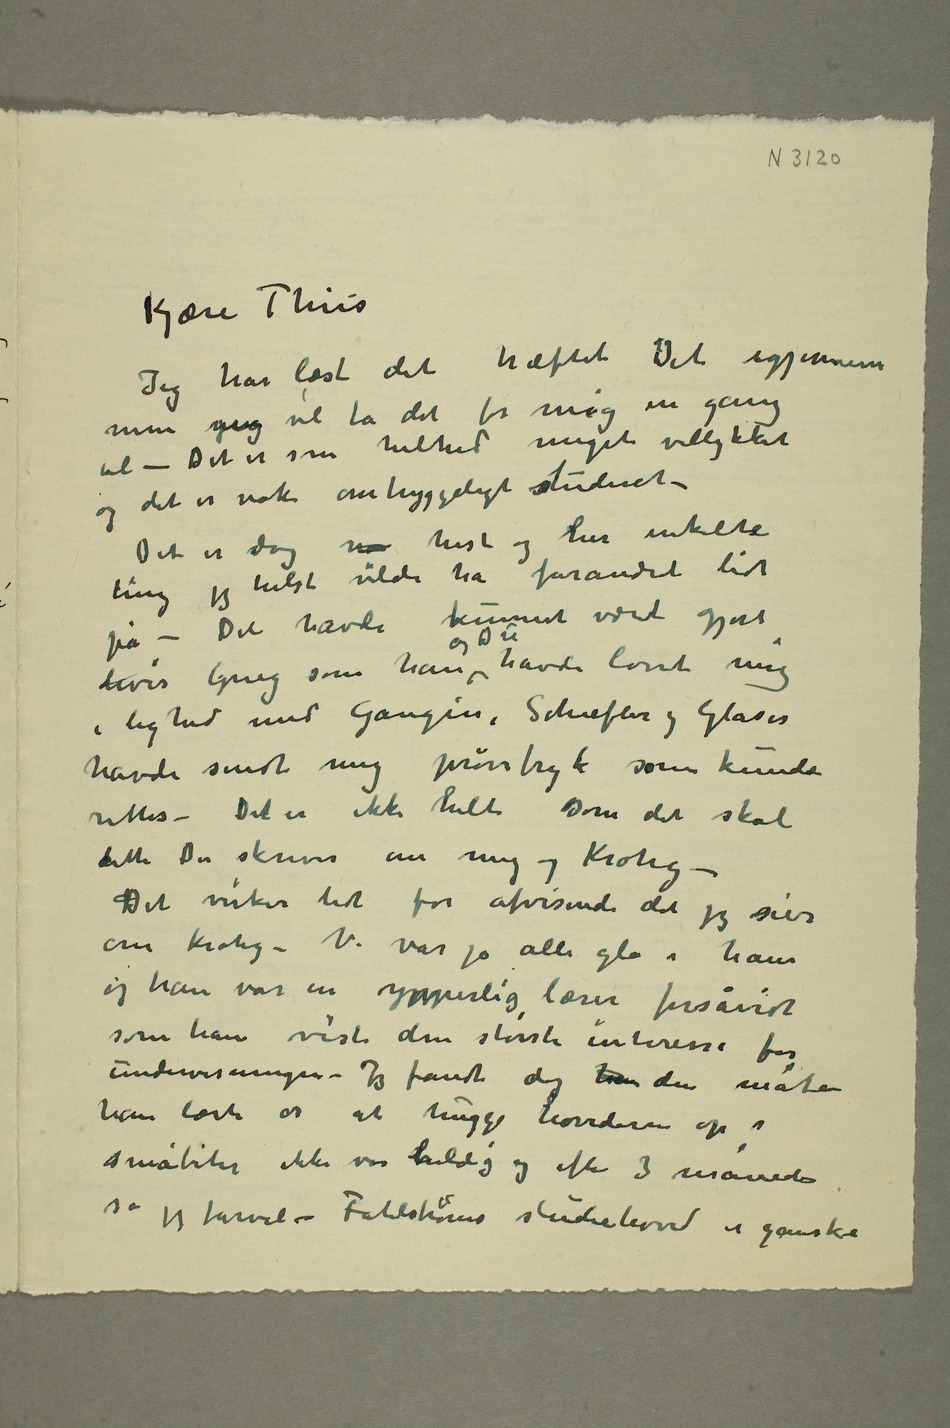 N 3120
Kjære Thiis
Jeg har læst det hæftet Det igjennem
men jeg vil ta det for mig en gang
til – Det er som helhed meget vellykket
og det er nok omhyggeligt studeret –
Det er dog hist og her enkelte
ting jeg helst vilde ha forandret lidt
på – Det havde kunnet været gjort
og Du
hvis Grieg som han havde lovet mig
i lighed med Gaugin, Schiefler og Glaser
havde sendt mig prøvetryk som kunde
rettes – Det er ikke helt som det skal
dette Du skriver om mig og Krohg –
Det virker lidt for afvisende det jeg sier
om Krohg – Vi var jo alle gla i ham
og han var en ypperlig lærer forsåvidt
som han viste den største interesse for
undervisningen – Jeg fandt dog den måten
han lærte os at hugge hovederne op i
småbiter ikke var heldig og efter 3 måneder
sa jeg farvel – Fahlstrøms studiehoved er ganske